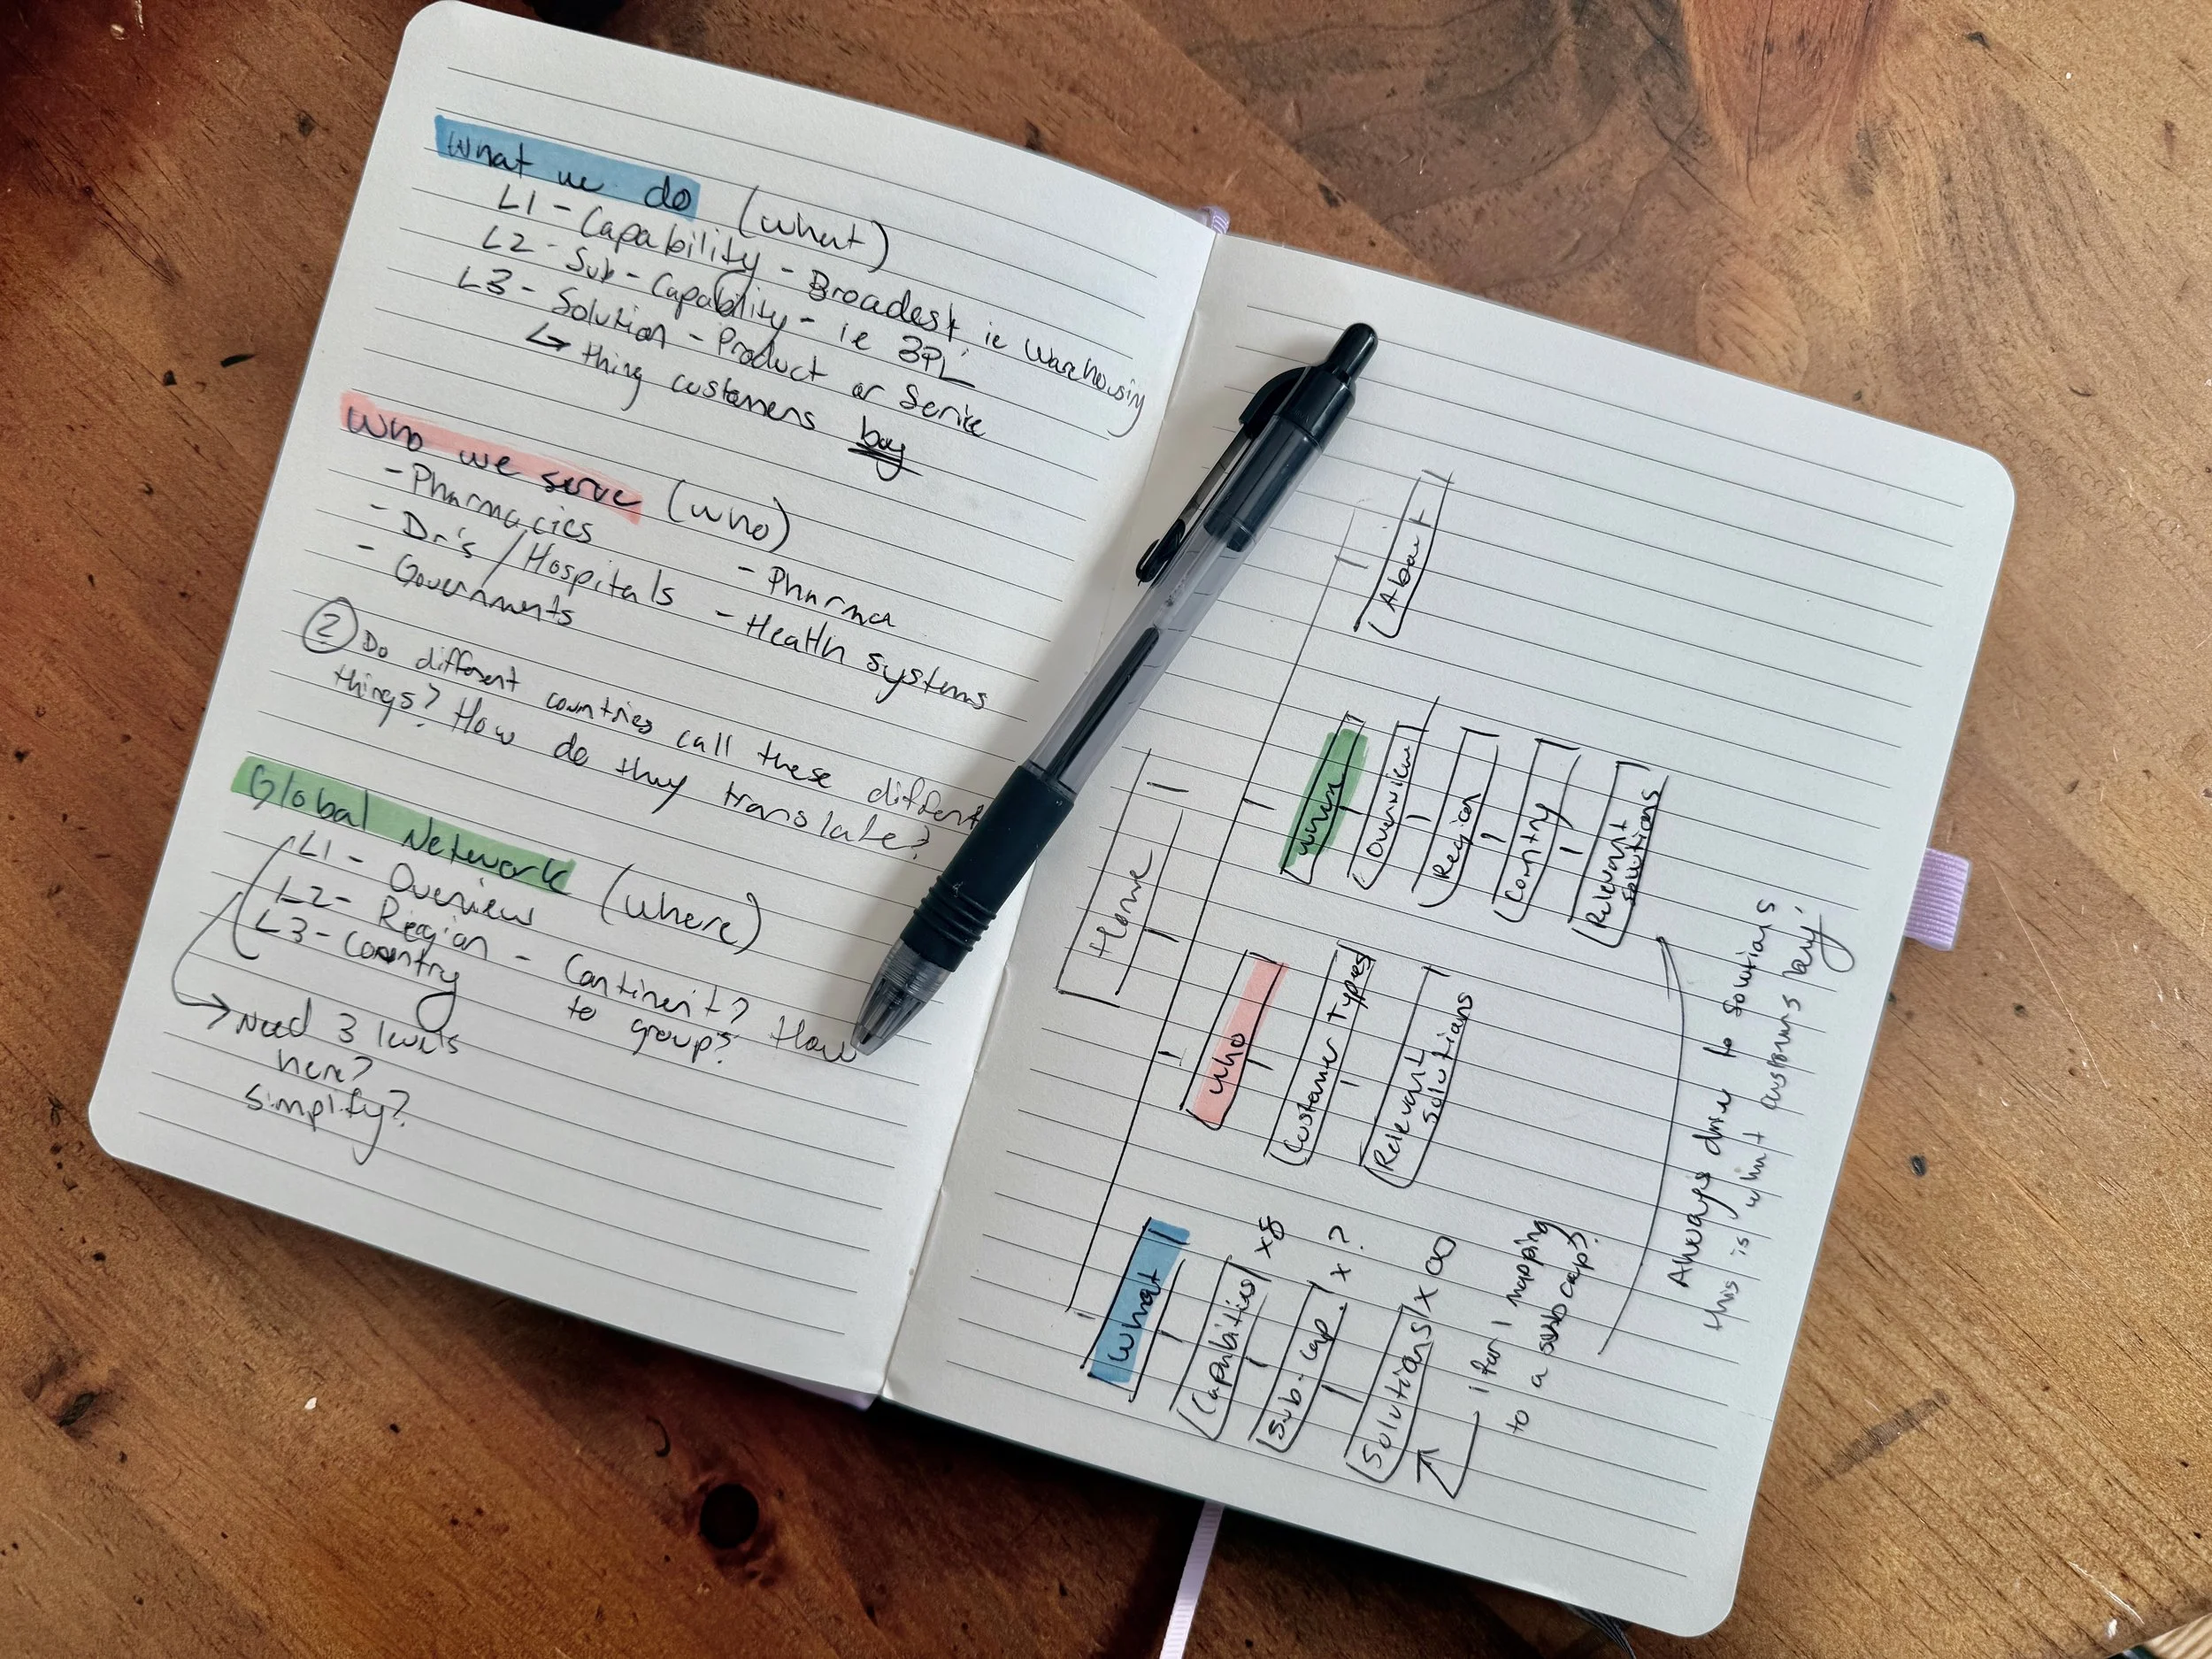 What we do (what)
L1 - Capability - Broadest, ie Warehousing
L2 - Sub - Capability - ie 3PL
L3 - Solution - Product or Service
↳ thing customers buy
Who we serve (who)
- Pharmacies
- Dr's / Hospitals
- Governments
- Pharma
- Health systems
② Do different countries call these different
things? How do they translate?
Global Network (where)
L1 - Overview
L2 - Region - Continent? How
to group?
L3 - Country
→ Need 3 levels
here?
simplify?
Home
What
Capabilities x8
Sub-cap x ?
Solutions x ∞
1 for 1 mapping
to a sub cap?
Who
Customer Types
Relevant
Solutions
Overview
Region
Country
Relevant
solutions
About
Always drive to solutions
this is what customers buy.